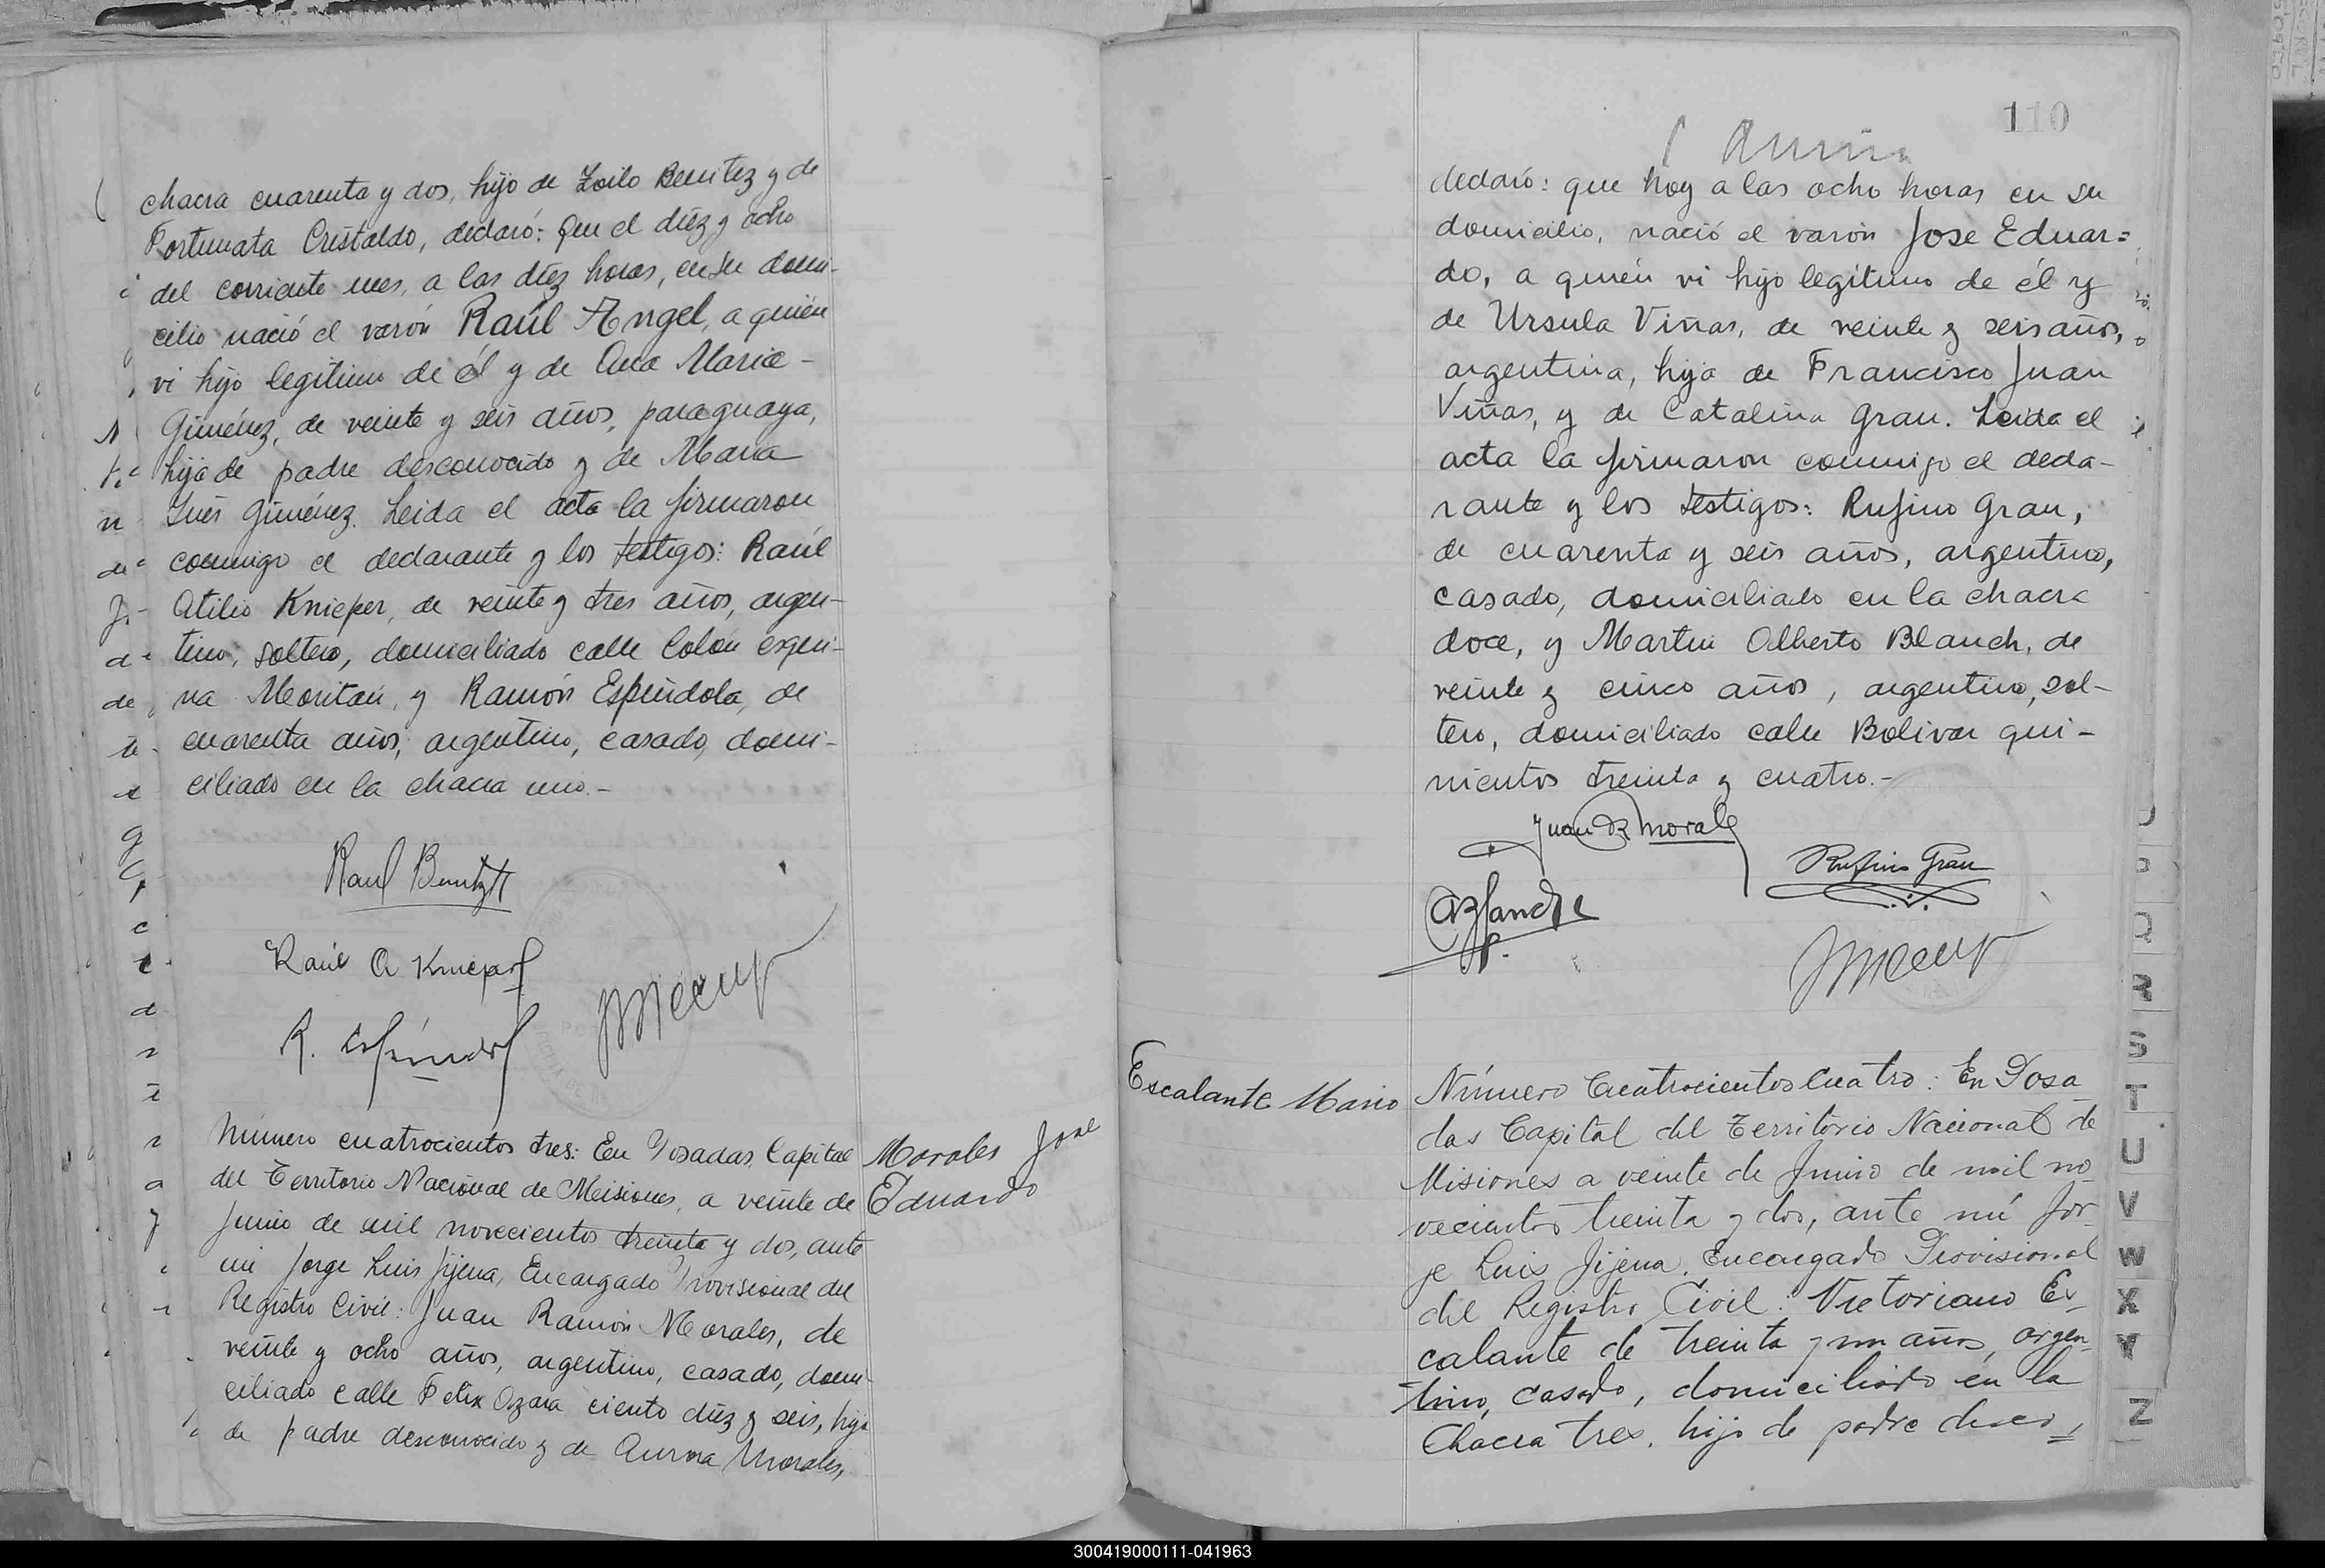 chacra cuarenta y dos, hijo de Zoilo Benitez y de
Fortunata Cristaldo, declaró: Que el diez y ocho
del corriente mes, a las diez horas, en su domi-
cilio nació el varón Raúl Angel, a quién
vi hijo legitimo de él y de Ana Maria -
Giménez, de veinte y seis años, paraguaya,
hija de padre desconocido y de Maria
Inés Giménez. Leida el acta la firmaron
conmigo el declarante y los testigos: Raúl
Atilio Knieper, de veinte y tres años, argen-
tino, soltero, domiciliado calle Colón esqui-
na Moritán, y Ramón Espíndola, de
cuarenta años, argentino, casado, domi-
ciliado en la chacra uno.-
Raul Benitez
Raúl A Knieper
R. Espíndola
Número cuatrocientos tres: En Posadas, Capital
del Territorio Nacional de Misiones, a veinte de
Junio de mil novecientos treinta y dos, ante
mi Jorge Luis Jijena, Encargado Provisional del
Registro Civil: Juan Ramón Morales, de
veinte y ocho años, argentino, casado, domi-
ciliado calle Felix Azara ciento diez y seis, hijo
de padre desconocido y de Aurora Morales,
Morales José
Eduardo
110
declaró: que hoy a las ocho horas en su
domicilio, nació el varón José Eduar=
do, a quién vi hijo legítimo de él y
de Ursula Viñas, de veinte y seis años,
argentina, hija de Francisco Juan
Viñas, y de Catalina Grau. Leida el
acta la firmaron conmigo el decla-
rante y los testigos: Rufino Grau,
de cuarenta y seis años, argentino,
casado, domiciliado en la chacra
doce, y Martin Alberto Blanch, de
veinte y cinco años, argentino, sol-
tero, domiciliado calle Bolivar qui-
nientos treinta y cuatro.-
Juan R Morales
Rufino Grau
Escalante Mario
Número Cuatrocientos Cuatro: En Posa
das Capital del Territorio Nacional de
Misiones a veinte de Junio de mil no
vecientos treinta y dos, ante mí Jor
ge Luis Jijena, Encargado Provisional
del Registro Civil: Victoriano Es
calante de treinta y un años, argen
tino, casado, domiciliado en la
Chacra tres, hijo de padre desco=
Q
R
S
T
U
V
W
X
Y
Z
300419000111-041963